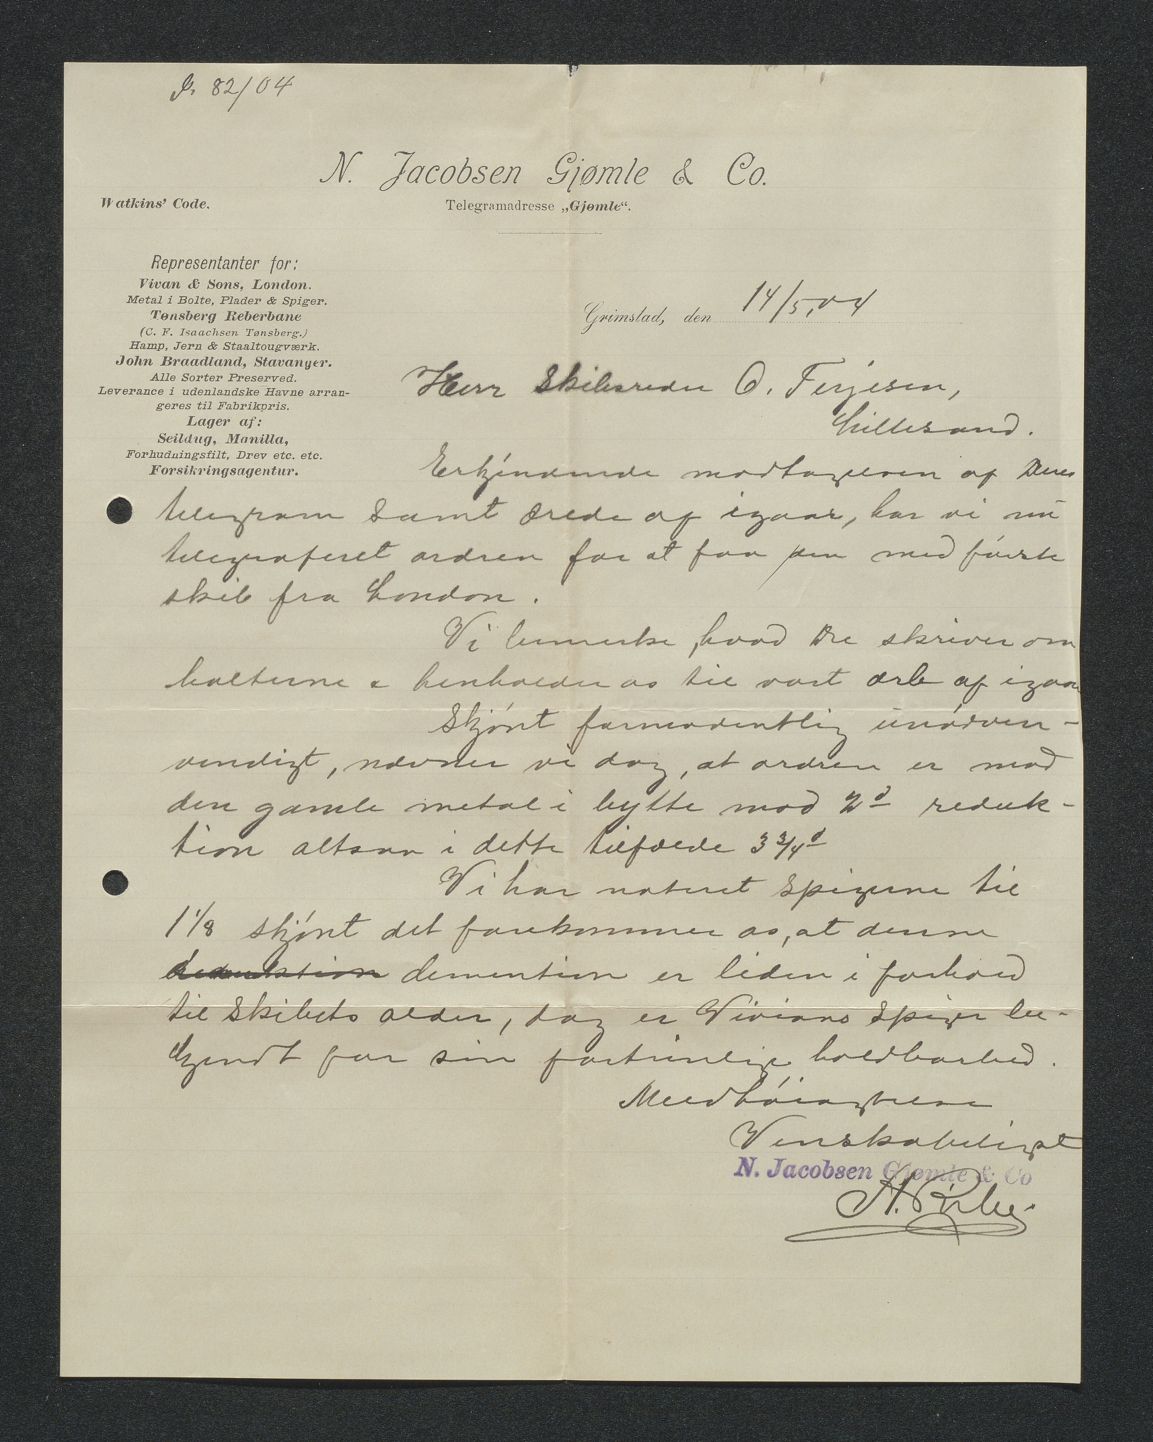 J. 82/04
N. Jacobsen Gjømle & Co.
Watkins' Code.
Telegramadresse „Gjømle“.
Representanter for:
Vivan & Sons, London.
Metal i Bolte, Plader & Spiger.
Tønsberg Reberbane
(C. F. Isaachsen Tønsberg.)
Hamp, Jern & Staaltougværk.
John Braadland, Stavanger.
Alle Sorter Preserved.
Leverance i udenlandske Havne arran-
geres til Fabrikpris.
Lager af:
Seildug, Manilla,
Forhudningsfilt, Drev etc. etc.
Forsikringsagentur.
Grimstad, den 14/5.04
Herr Skibsreder O. Terjesen,
Lillesand.
Erkjendende modtagelsen af Deres
telegram samt ærede af igaar, har vi nu
telegraferet ordren for at faa den med første
skib fra London.
Vi bemerke, hvad De skriver om
bolterne & henholder os til vort ærb. af igaar
Skjønt formodentlig unødven-
vendigt, nævner vi dog, at ordren er mod
den gamle metal i bytte mod 2d reduk-
tion altsaa i dette tilfælde 3 3/4d
Vi har noteret spigerne til
1 1/8 skjønt det forekommer os, at denne
demention er liden i forhold
til skibets alder, dog er Vivians spiger be-
kjendt for sin fortrinlige holdbarhed.
Med høiagtelse
Venskabeligst
N. Jacobsen Gjømle & Co